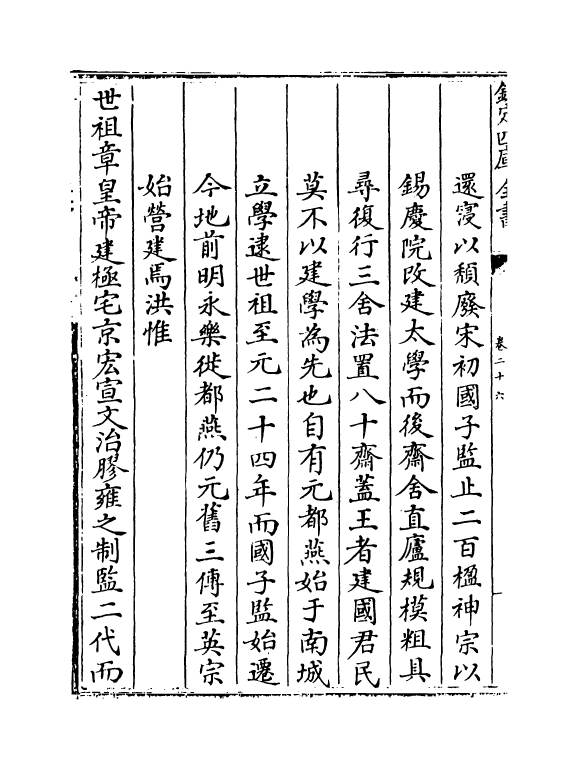 欽定四庫全書
卷二十六
還寖以頽廢宋初國子監止二百楹神宗以
錫慶院改建太學而後齋舍直廬規模粗具
尋復行三舍法置八十齋蓋王者建國君民
莫不以建學為先也自有元都燕始于南城
立學逮世祖至元二十四年而國子監始遷
今地前明永樂徙都燕仍元舊三傳至英宗
始營建焉洪惟
世祖章皇帝建極宅京宏宣文治膠雍之制監二代而